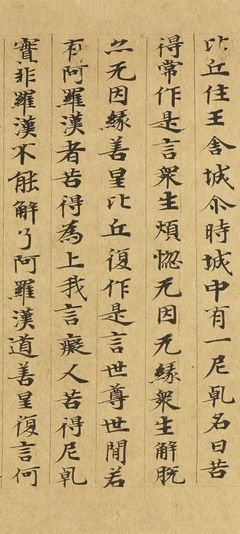 比丘住王舍城尒時城中有一尼乹名曰苦
得常作是言衆生煩惚无因无縁衆生解脫
亦无因縁善星比丘復作是言世尊世間若
有阿羅漢者苦得為上我言癡人苦得尼乹
實非羅漢不能解了阿羅漢道善星復言何